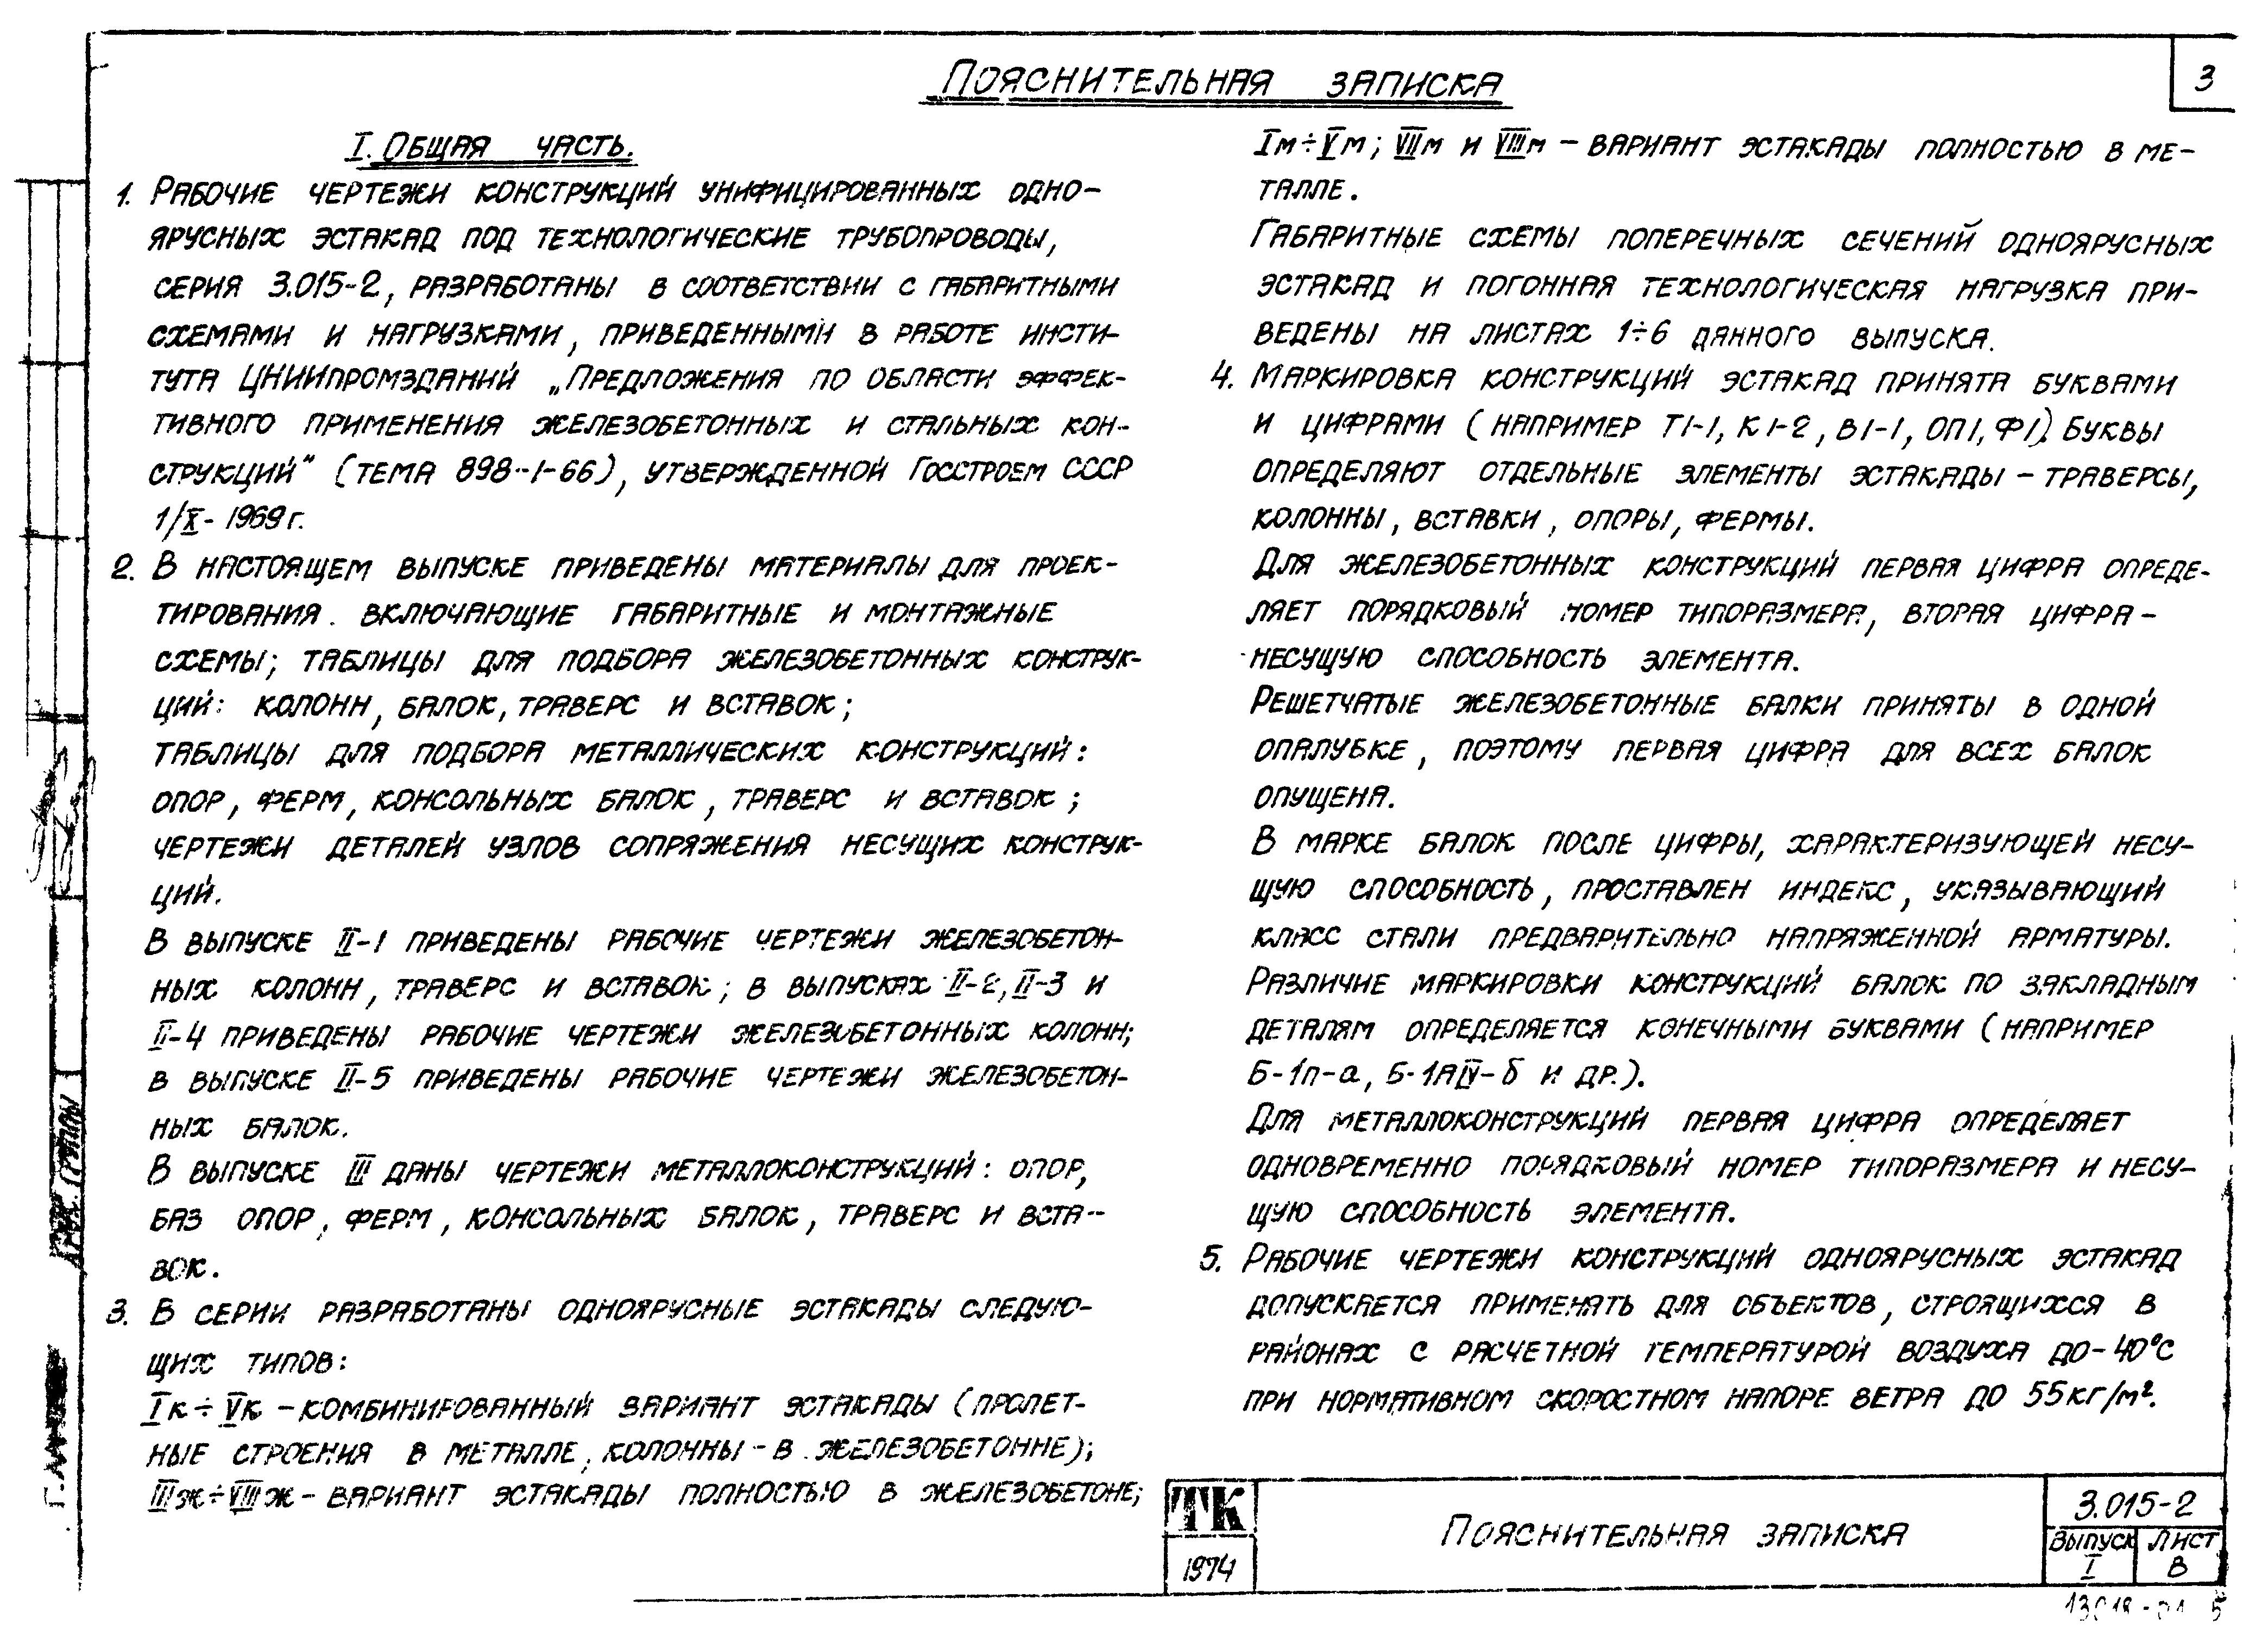 3
Пояснительная записка
I. Общая часть.
1. Рабочие чертежи конструкций унифицированных одно-
ярусных эстакад под технологические трубопроводы,
серия 3.015-2, разработаны в соответствии с габаритными
схемами и нагрузками, приведенными в работе инсти-
тута ЦНИИпромзданий „Предложения по области эффек-
тивного применения железобетонных и стальных кон-
струкций" (тема 898-1-66), утвержденной Госстроем СССР
1/X- 1969 г.
2. В настоящем выпуске приведены материалы для проек-
тирования. включающие габаритные и монтажные
схемы; таблицы для подбора железобетонных конструк-
ций: колонн, балок, траверс и вставок;
таблицы для подбора металлических конструкций:
опор, ферм, консольных балок, траверс и вставок;
чертежи деталей узлов сопряжения несущих конструк-
ций.
В выпуске II-1 приведены рабочие чертежи железобетон-
ных колонн, траверс и вставок; в выпусках II-2, II-3 и
II-4 приведены рабочие чертежи железобетонных колонн;
в выпуске II-5 приведены рабочие чертежи железобетон-
ных балок.
В выпуске III даны чертежи металлоконструкций: опор,
баз опор, ферм, консольных балок, траверс и вста-
вок.
3. В серии разработаны одноярусные эстакады следую-
щих типов:
Iк÷Vк - комбинированный вариант эстакады (пролет-
ные строения в металле, колонны - в железобетонне);
IIIж÷VIIIж - вариант эстакады полностью в железобетоне;
Iм÷Vм; VIIм и VIIIм - вариант эстакады полностью в ме-
талле.
Габаритные схемы поперечных сечений одноярусных
эстакад и погонная технологическая нагрузка при-
ведены на листах 1÷6 данного выпуска.
4. Маркировка конструкций эстакад принята буквами
и цифрами (например Т1-1, К1-2, В1-1, ОП1, Ф1). Буквы
определяют отдельные элементы эстакады - траверсы,
колонны, вставки, опоры, фермы.
Для железобетонных конструкций первая цифра опреде-
ляет порядковый номер типоразмера, вторая цифра -
несущую способность элемента.
Решетчатые железобетонные балки приняты в одной
опалубке, поэтому первая цифра для всех балок
опущена.
В марке балок после цифры, характеризующей несу-
щую способность, проставлен индекс, указывающий
класс стали предварительно напряженной арматуры.
Различие маркировки конструкций балок по закладным
деталям определяется конечными буквами (например
Б-1п-а, Б-1АIV-б и др.).
Для металлоконструкций первая цифра определяет
одновременно порядковый номер типоразмера и несу-
щую способность элемента.
5. Рабочие чертежи конструкций одноярусных эстакад
допускается применять для объектов, строящихся в
районах с расчетной температурой воздуха до -40°С
при нормативном скоростном напоре ветра до 55 кг/м².
ТК
1974
Пояснительная записка
3.015-2
Выпуск I
Лист В